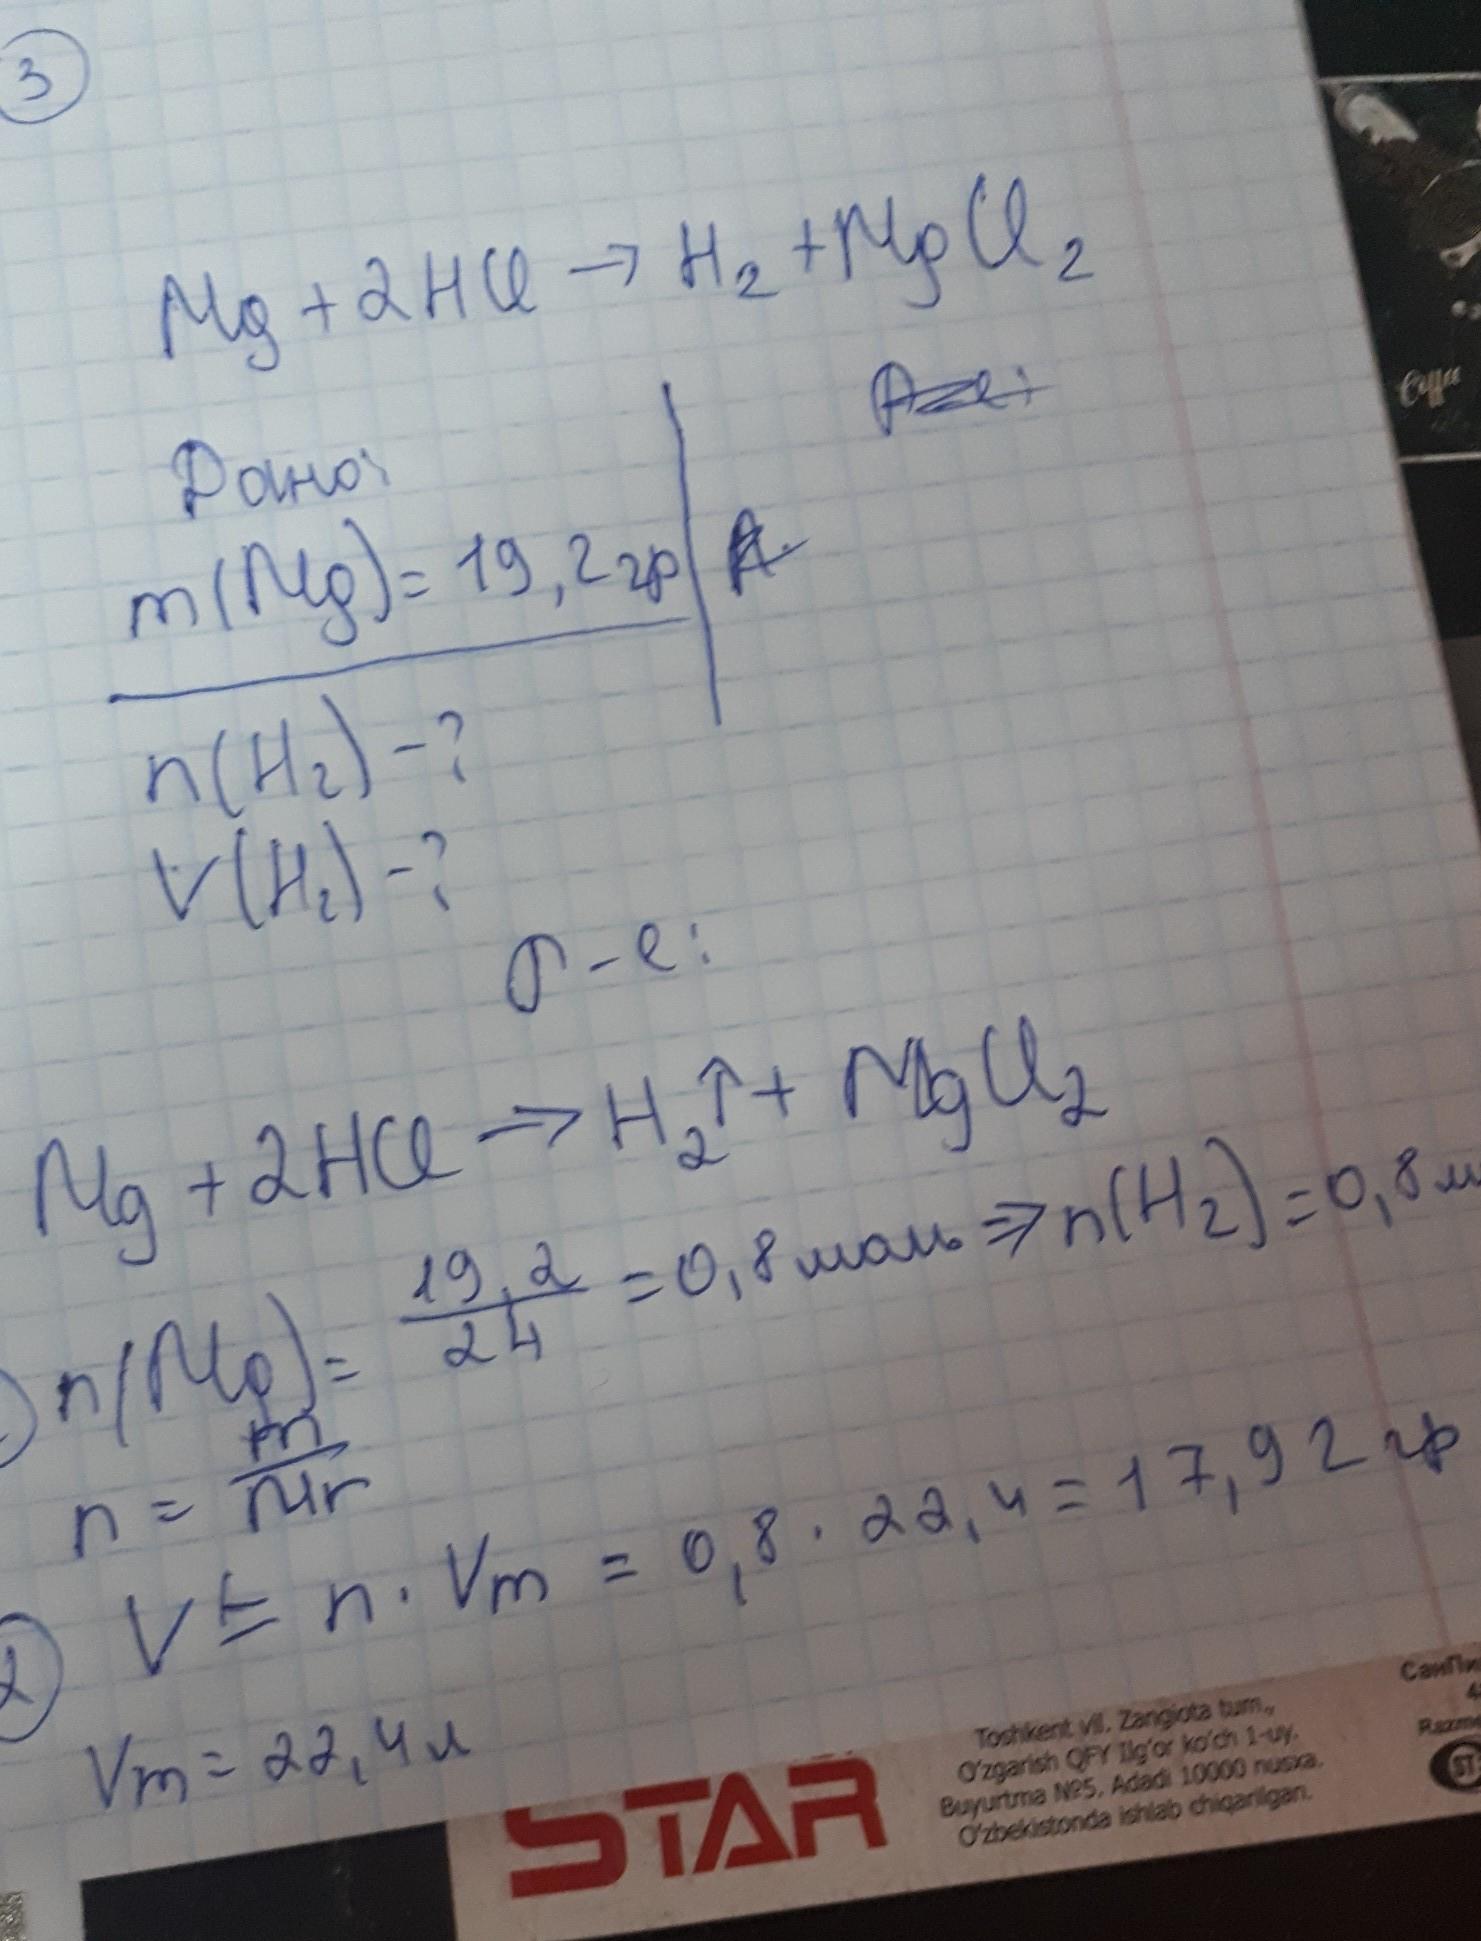 3
Mg + 2HCl → H₂ + MgCl₂
Дано:
m(Mg) = 19,2 гр
n(H₂) - ?
V(H₂) - ?
P-e:
Mg + 2HCl → H₂↑ + MgCl₂
n(Mg) = 19,2/24 = 0,8 моль ⇒ n(H₂) = 0,8 м
n = m/Mr
2 V = n · Vm = 0,8 · 22,4 = 17,92 гр
Vm = 22,4 л
STAR
Toshkent vil. Zangiota tum.,
O'zgarish QFY Ilg'or ko'ch 1-uy.
Buyurtma №5. Adadi 10000 nusxa.
O'zbekistonda ishlab chiqarilgan.
СанПи
Razm
ST